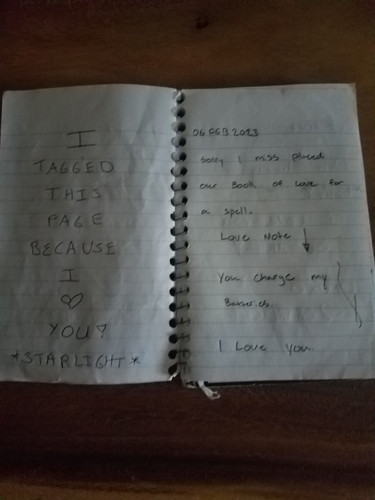 I
TAGGED
THIS
PAGE
BECAUSE
I
♡
YOU?
*STARLIGHT*
06 FEB 2023
Sorry I miss placed
our Book of Love for
a spell.
Love Note ↓
You charge my
I Love You.